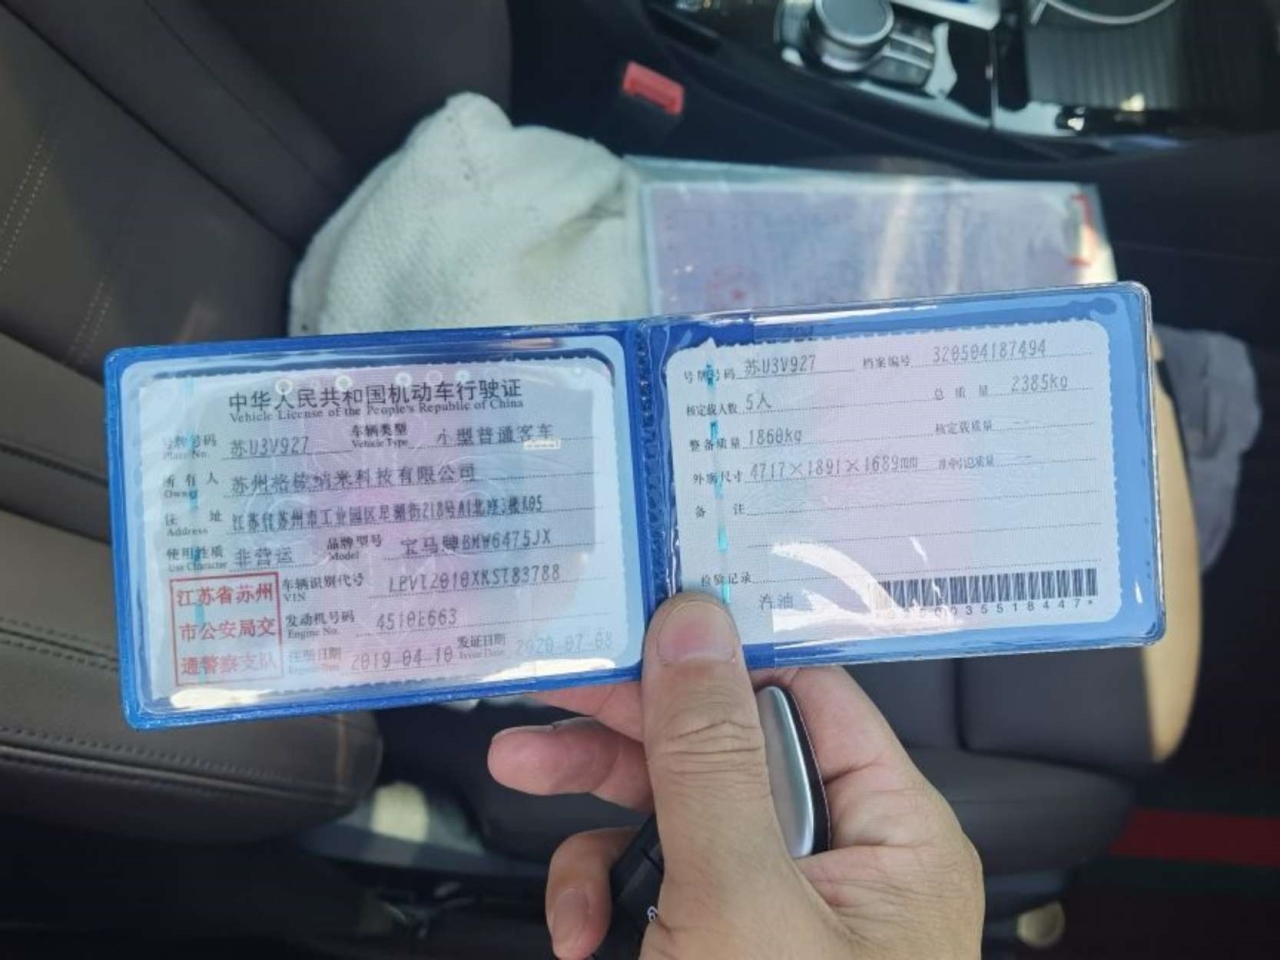 中华人民共和国机动车行驶证
Vehicle License of the People's Republic of China
号牌号码 苏U3V927 车辆类型 小型普通客车
Plate No. Vehicle Type
所有人 苏州格 纳米科技有限公司
Owner
住址 江苏省苏州市工业园区 218号A1北座
Address
使用性质 非营运 品牌型号 宝马牌BMW6475JX
Use Character Model
江苏省苏州
市公安局交
通警察支队
车辆识别代号
VIN
发动机号码 4510E663
Engine No.
注册日期 2019-04-10 发证日期 2020-07-08
Issue Date
号牌号码 苏U3V927 档案编号 320504187494
核定载人数 5人 总质量 2385kg
整备质量 1860kg 核定载质量 --
外廓尺寸 4717×1891×1689mm 准牵引总质量 --
备注
检验记录
汽油